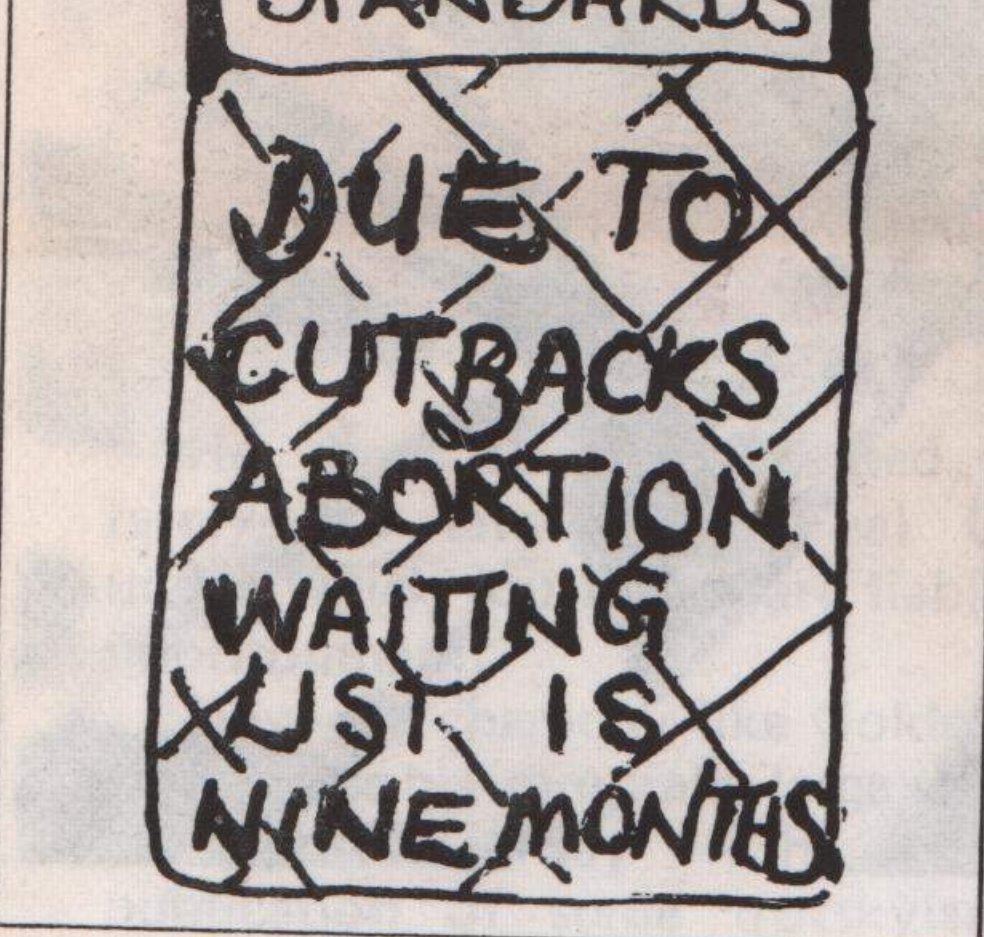 STANDARDS
DUE TO
CUTBACKS
ABORTION
WAITING
LIST IS
NINE MONTHS